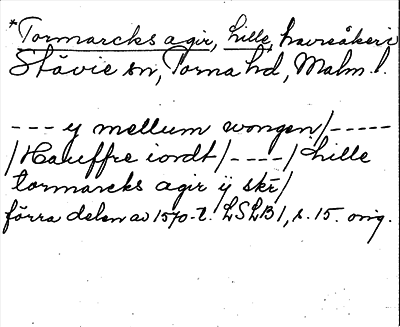 *Tormarcks agir, Lille, havreåkeri
Stävie sn, Torna hd, Malm. l.
--- y mellum wongen/-----
/Hauffre iordt/----/Lille
tormarcks agir ÿ skr/
förra delen av 1570-t. LSLB 1, s. 15. orig.